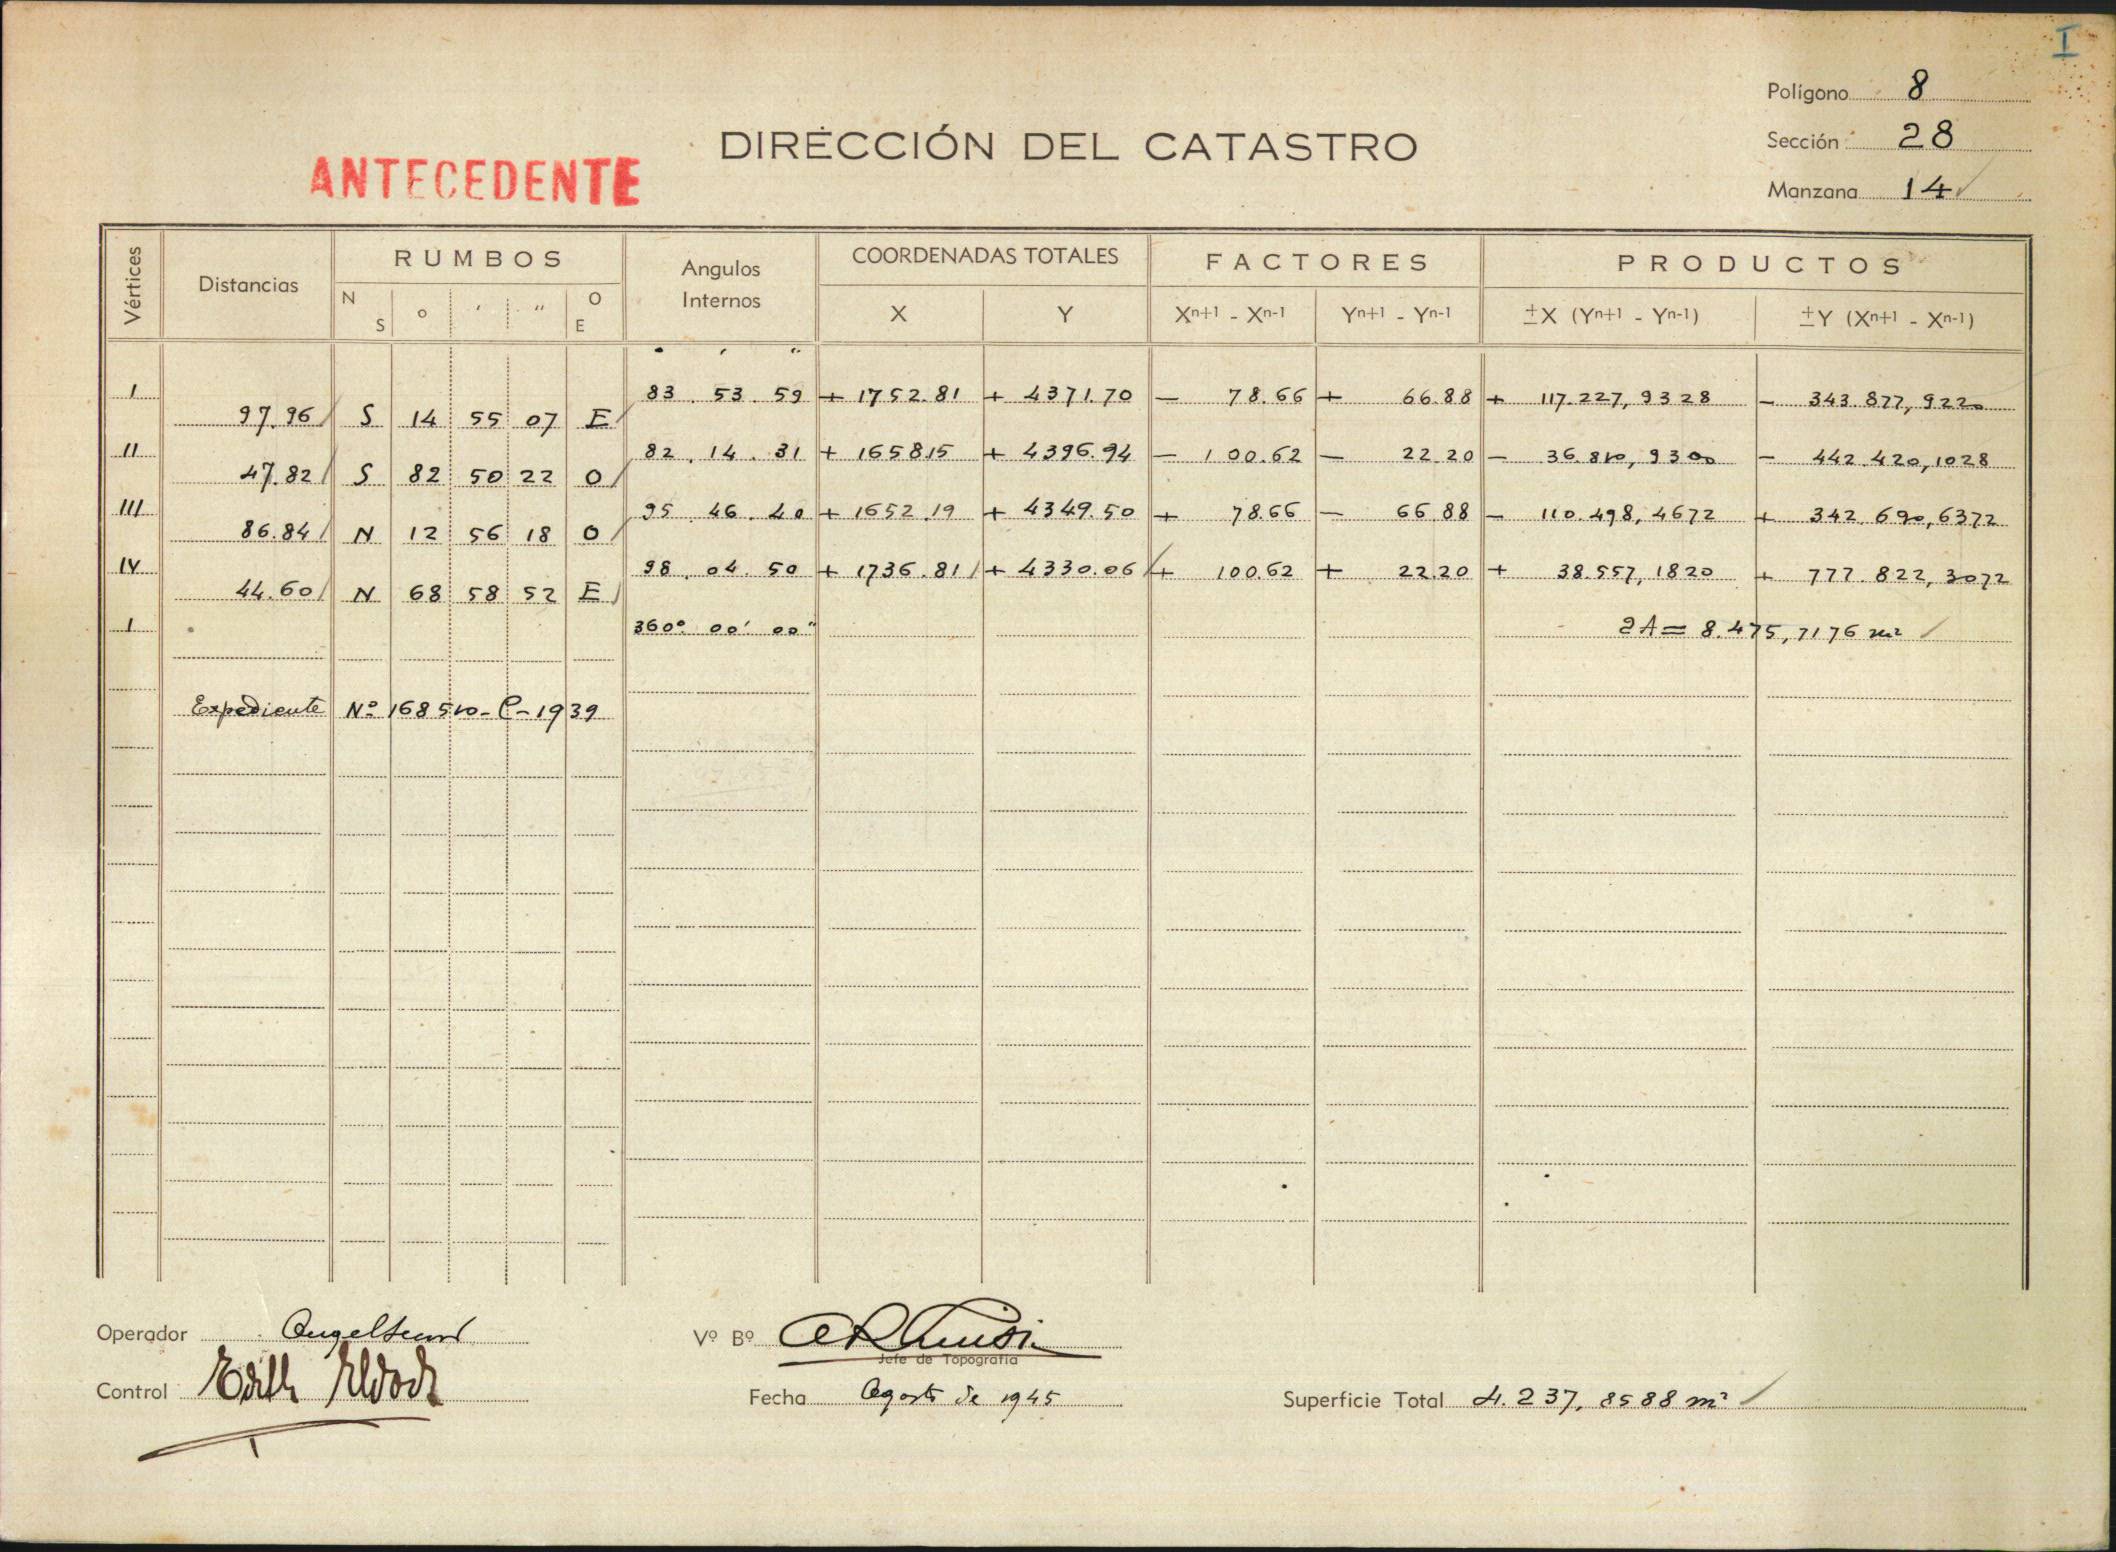 I
Polígono 8
Sección 28
Manzana 14
DIRECCIÓN DEL CATASTRO
ANTECEDENTE
Vértices Distancias RUMBOS Angulos Internos COORDENADAS TOTALES FACTORES PRODUCTOS
N S o ' " O E X Y Xn+1 - Xn-1 Yn+1 - Yn-1 ±X (Yn+1 - Yn-1) ±Y (Xn+1 - Xn-1)
I 83 . 53 . 59 + 1752.81 + 4371.70 - 78.66 + 66.88 + 117.227,9328 - 343.877,9220
97.96 S 14 55 07 E
II 82 . 14 . 31 + 1658.15 + 4396.94 - 100.62 - 22.20 - 36.810,9300 - 442.420,1028
47.82 S 82 50 22 O
III 95 46 40 + 1652.19 + 4349.50 + 78.66 - 66.88 - 110.498,4672 + 342.690,6372
86.84 N 12 56 18 O
IV 98 . 04 . 50 + 1736.81 + 4330.06 + 100.62 + 22.20 + 38.557,1820 + 777.822,3072
44.60 N 68 58 52 E
I 360° 00' 00" 2A = 8.475,7176 m²
Expediente Nº 168510-C-1939
Operador
Vº Bº
Jefe de Topografía
Control Edith
Fecha Agosto de 1945
Superficie Total 4.237,8588 m²